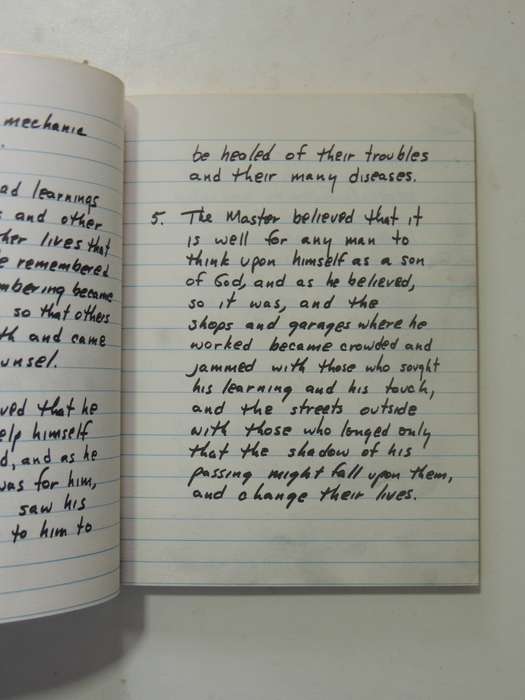 mechanic
.
ad learnings
s and other
her lives that
e remembered
mbering became
so that others
th and came
unsel.
ved that he
elp himself
d, and as he
was for him,
saw his
to him to
be healed of their troubles
and their many diseases.
5. The Master believed that it
is well for any man to
think upon himself as a son
of God, and as he believed,
so it was, and the
shops and garages where he
worked became crowded and
jammed with those who sought
his learning and his touch,
and the streets outside
with those who longed only
that the shadow of his
passing might fall upon them,
and change their lives.